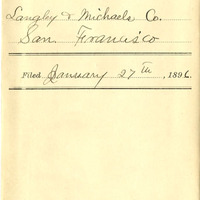 Langley & Michaels Co.
San Francisco
Filed January 27th, 1896.